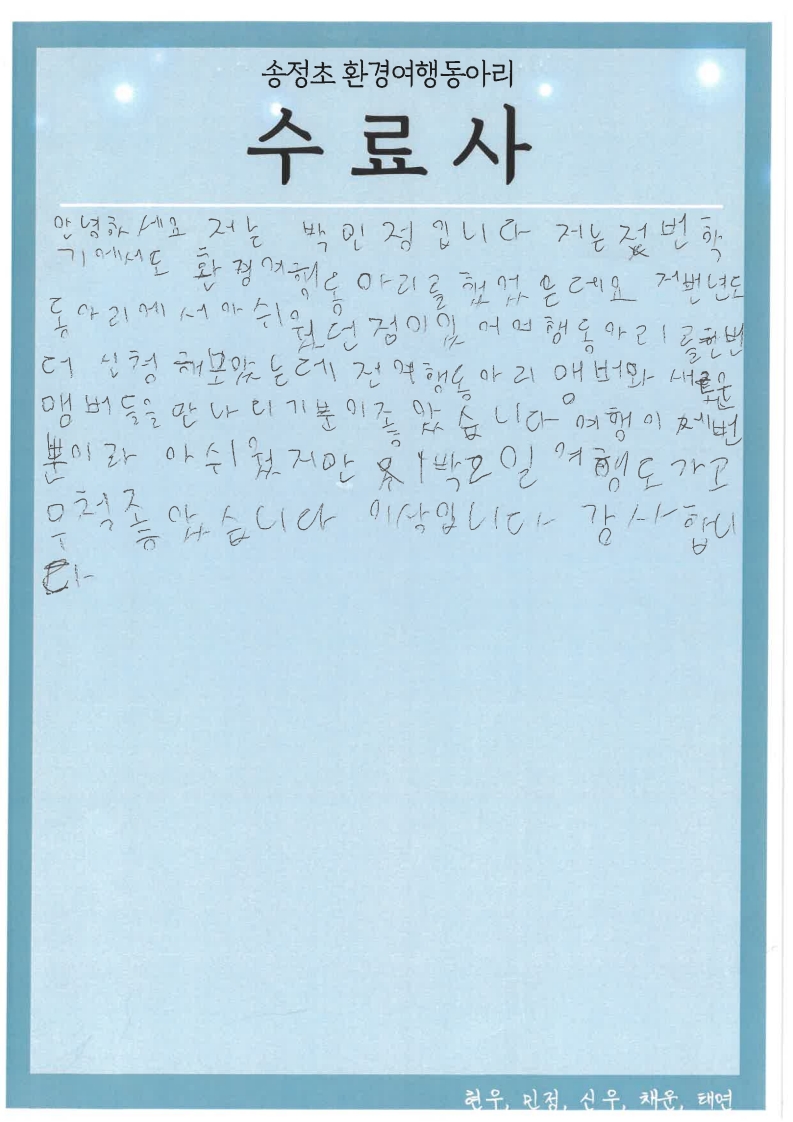 송정초 환경여행동아리
수료사
안녕하세요 저는 박민정입니다 저는 저번 학
기에서도 환경여행동아리를 했었은데요 저번년도
동아리에서 아쉬웠던 점이있어 여행동아리를한번
더 신청해보았는데 전여행동아리 맴버와 새로운
맴버들을 만나리기분이좋았습니다 여행이 제번
뿐이라 아쉬웠지만 1박2일 여행도가고
무척좋았습니다 이상입니다 감사합니
다
현우, 민정, 신우, 채운, 태연